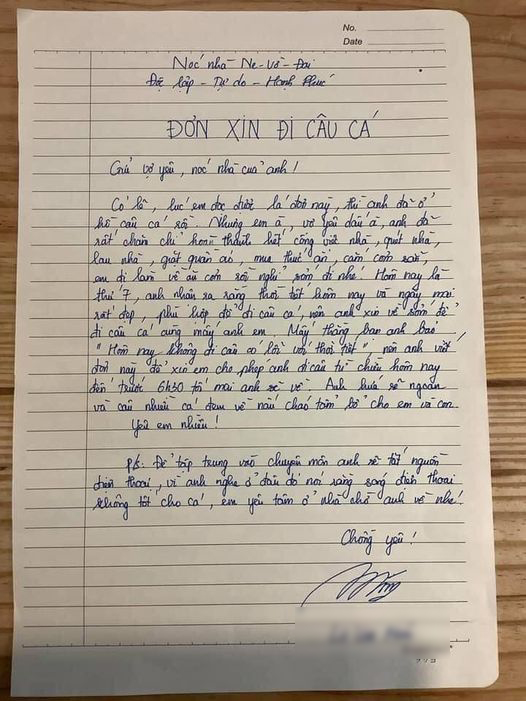 No.
Date
Nóc nhà Ne-Vờ-Đai
Độc lập - Tự do - Hạnh Phúc
ĐƠN XIN ĐI CÂU CÁ
Gửi vợ yêu, nóc nhà của anh!
Có lẽ, lúc em đọc được lá đơn này, thì anh đã ở
hồ câu cá rồi. Nhưng em à, vợ yêu dấu à, anh đã
rất chăm chỉ hoàn thành hết công việc nhà, quét nhà,
lau nhà, giặt quần áo, mua thức ăn, cắm cơm sẵn,
em đi làm về ăn cơm rồi nghỉ sớm đi nhé. Hôm nay là
thứ 7, anh nhận ra rằng thời tiết hôm nay và ngày mai
rất đẹp, phù hợp để đi câu cá, nên anh xin về sớm để
đi câu cá cùng mấy anh em. Mấy thằng bạn anh bảo
"Hôm nay không đi câu có lỗi với thời tiết" nên anh viết
đơn này để xin em cho phép anh đi câu từ chiều hôm nay
đến trước 6h30 tối mai anh sẽ về. Anh hứa sẽ ngoan
và câu nhiều cá đem về nấu cháo tẩm bổ cho em và con.
Yêu em nhiều!
P/s: Để tập trung vào chuyên môn anh sẽ tắt nguồn
điện thoại, vì anh nghe ở đâu đó nói rằng sóng điện thoại
không tốt cho cá, em yên tâm ở nhà chờ anh về nhé!
Chồng yêu!